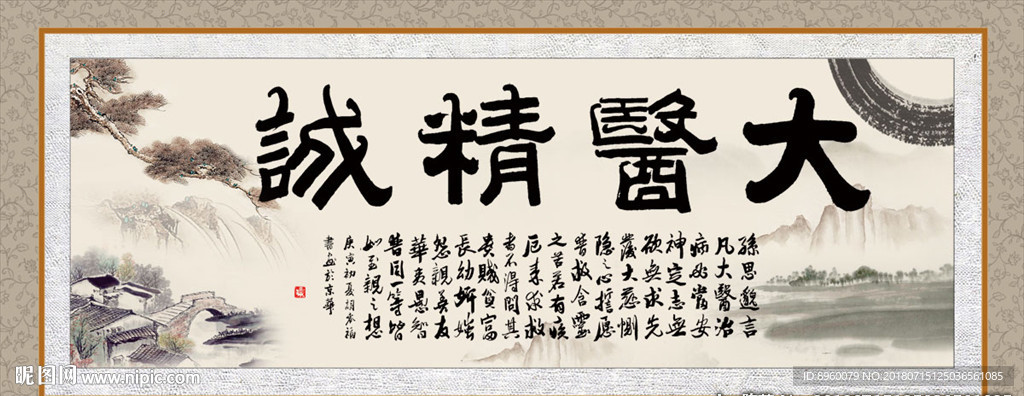 大醫精誠
孫思邈言
凡大醫治
病必當安
神定志無
欲無求先
發大慈惻
隐之心誓愿
普救含靈
之苦若有疾
厄来求救
者不得問其
貴賤貧富
長幼妍媸
怨親善友
華夷愚智
普同一等皆
如至親之想
庚寅初夏
於京華
昵图网 www.nipic.com
ID:6960079 NO.20180715125036561085